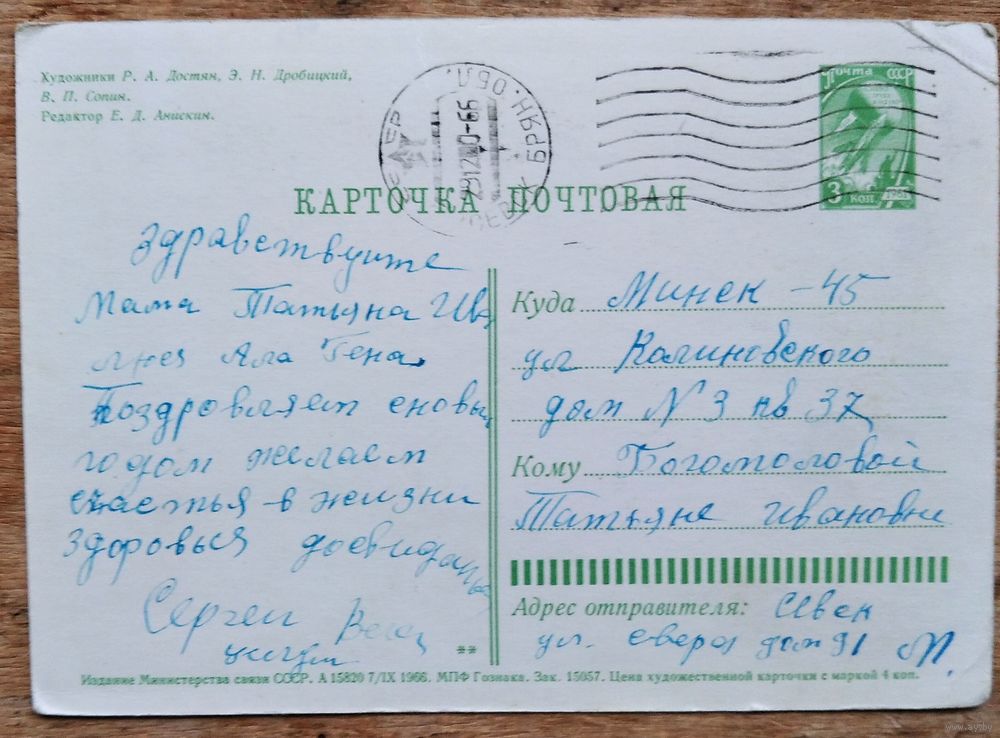 Художники Р. А. Достян, Э. Н. Дробицкий,
В. П. Сопин.
Редактор Е. Д. Анискин.
БРЯН. ОБЛ.
231266
ПОЧТА СССР
3 КОП. 1961
КАРТОЧКА ПОЧТОВАЯ
Здравствуите
Мама Татьяна
Ала Гена,
Поздровляем сновы
годом желаем
счастья в жизни
здоровья досвидань
Сергеи
Куда Минск-45
ул Калиновского
дом N 3 кв 37
Кому Богомоловой
Татьяне ивановни
Адрес отправителя:
ул. дом 91
**
Издание Министерства связи СССР. А 15820 7/IX 1966. МПФ Гознака. Зак. 15057. Цена художественной карточки с маркой 4 коп.
www.ay.by